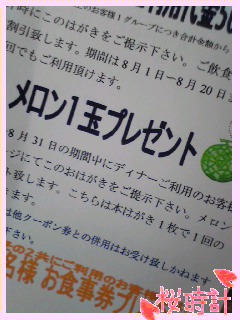 上のお客様1グループにつき合計金額から
にこのはがきをご提示下さい。ご飲食
割引致します。期間は8月1日~8月20日ま
回でもご利用頂けます。
メロン1玉プレゼント
8月31日の期間中にディナーご利用のお客様
ージにてこのおはがきをご提示下さい。メロン
ト致します。こちらは本はがき1枚で1回の
きます。
は他クーポン券との併用はお受け致しかねます
下さい。
の子供とご利用のお客
名様 お食事券プ
桜時計